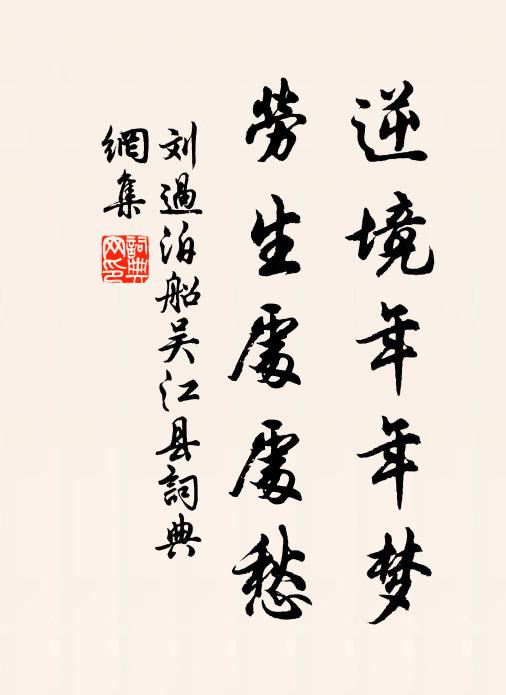 逆境年年梦
勞生處處愁
刘過泊船吴江县詞典
網集
詞典
网印